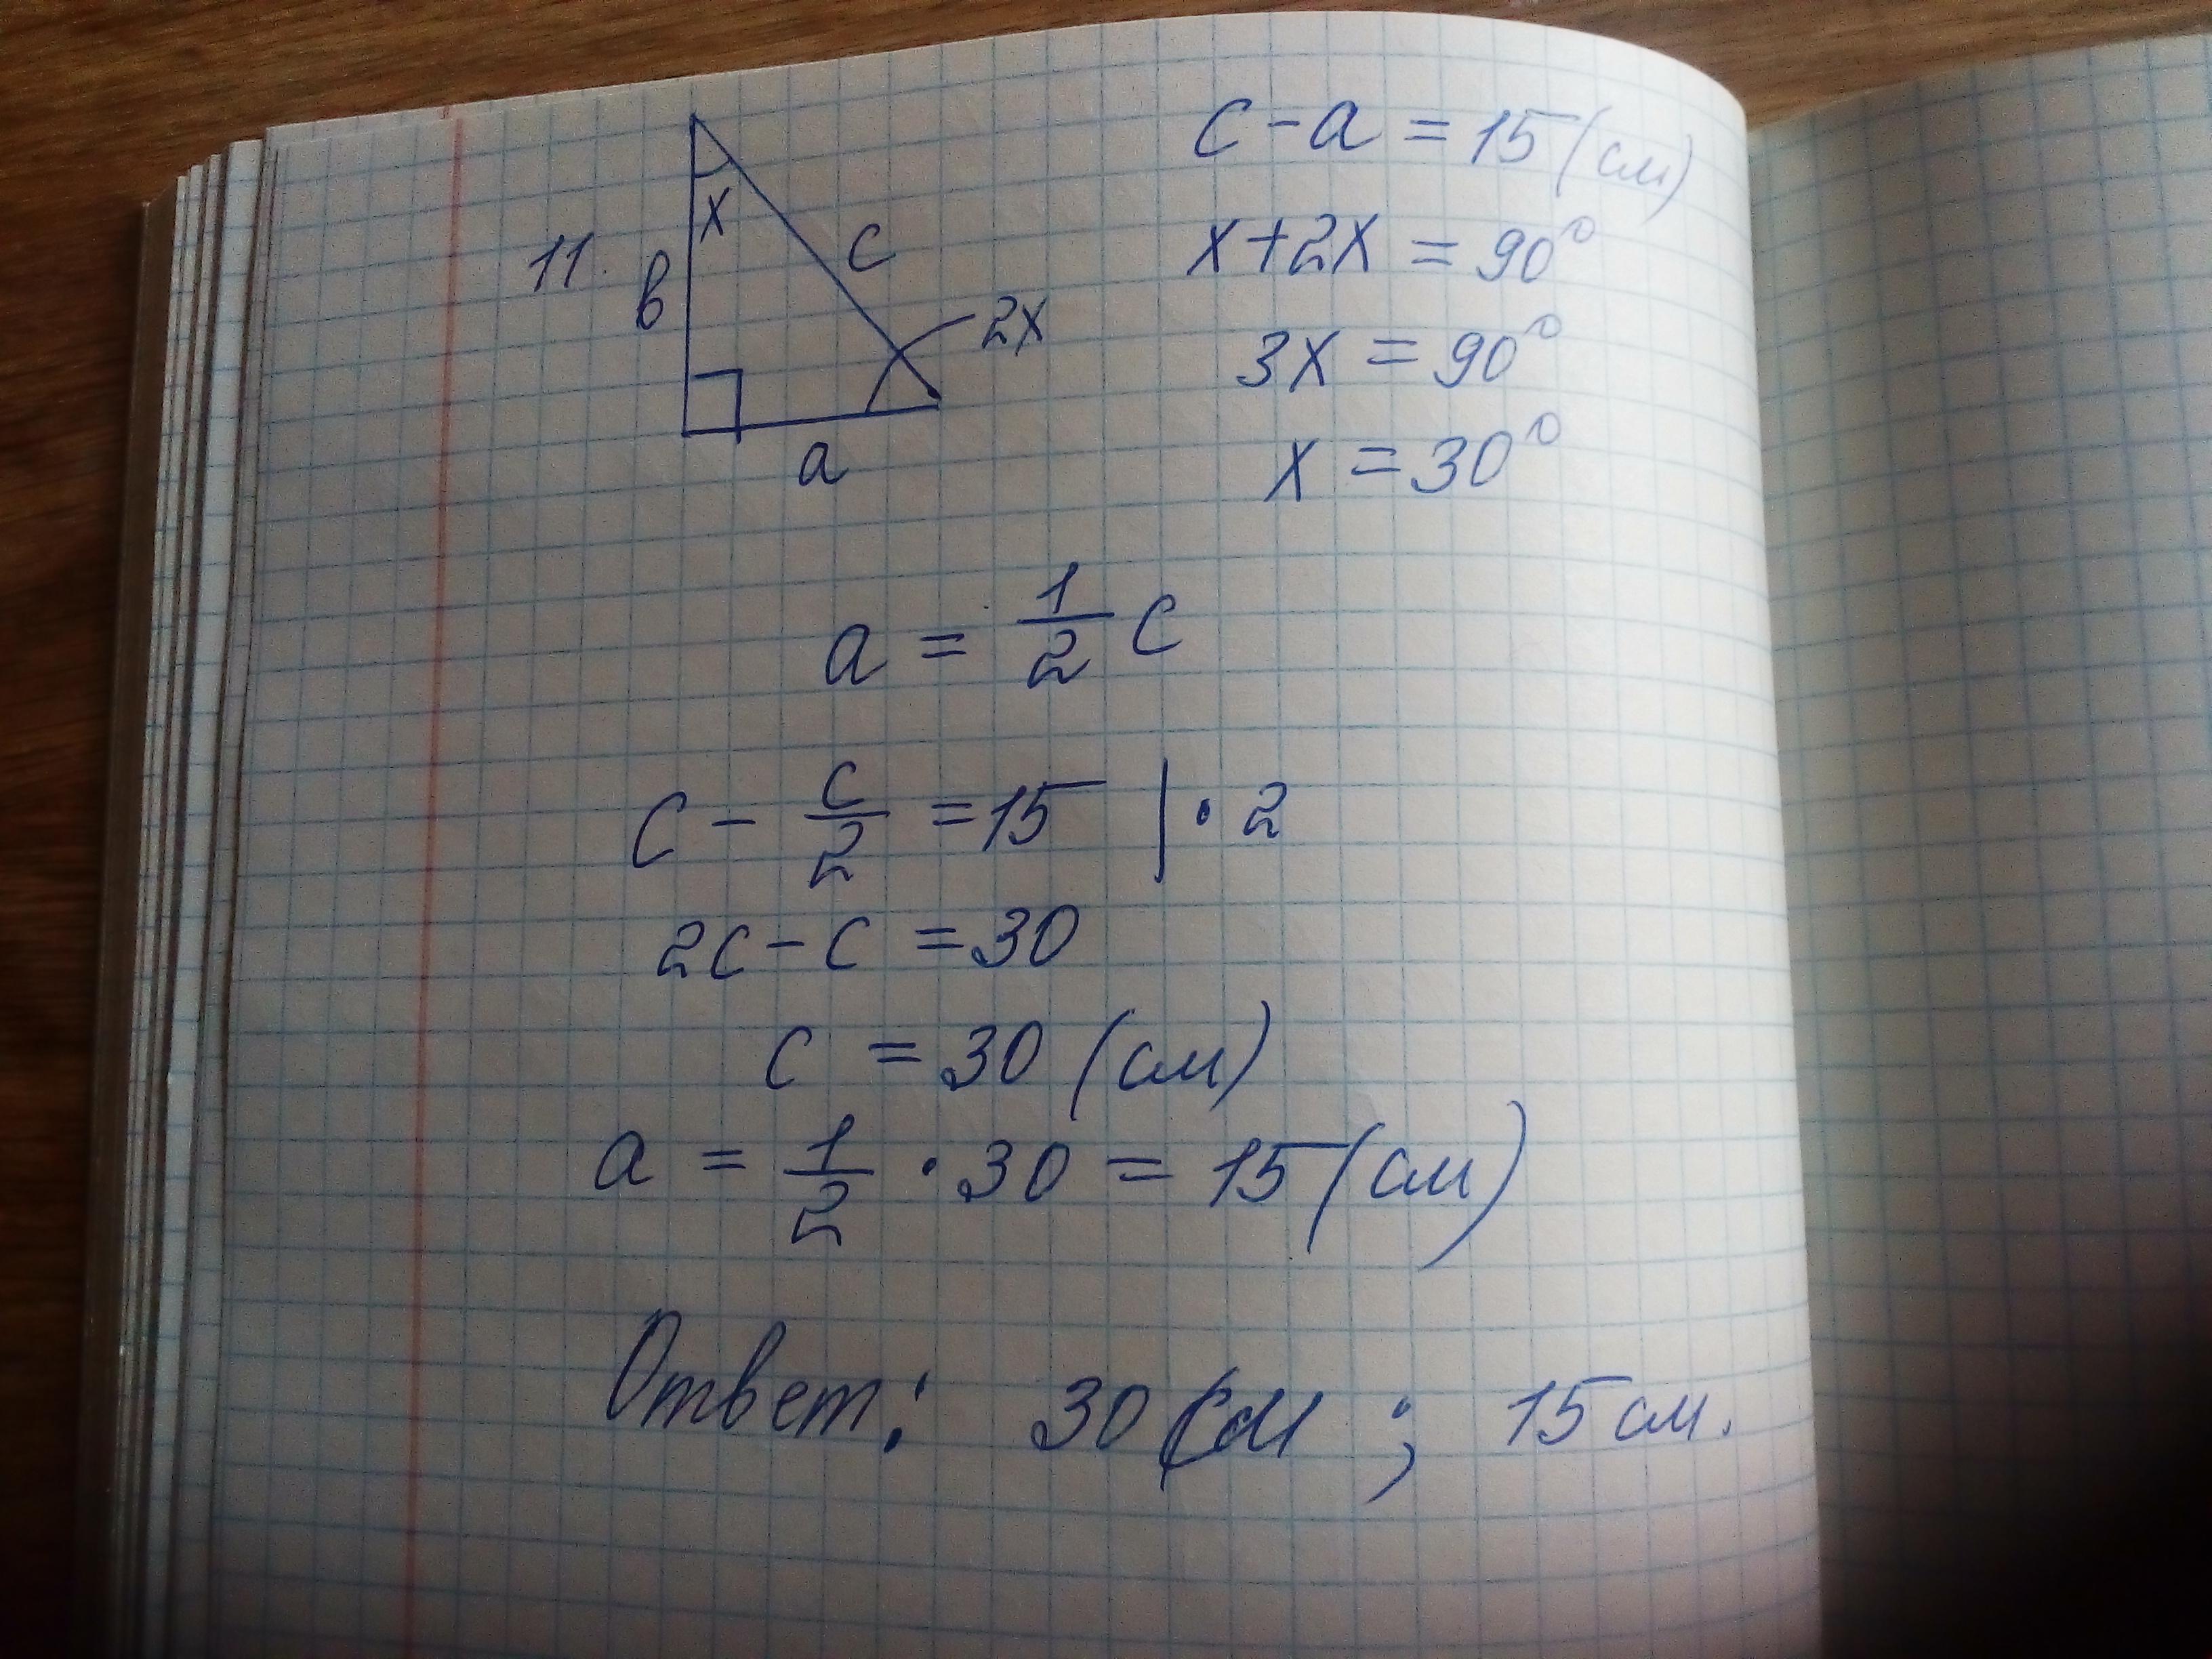 11.
x
в
c
2x
a
c - a = 15 (см)
x + 2x = 90°
3x = 90°
x = 30°
a = 1/2 c
c - c/2 = 15 | · 2
2c - c = 30
c = 30 (см)
a = 1/2 · 30 = 15 (см)
Ответ: 30 см ; 15 см.